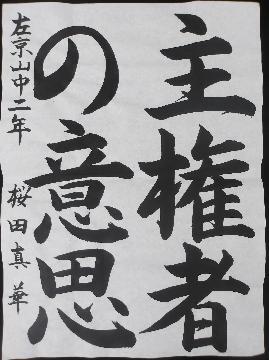 主権者
の意思
左京山中二年
桜田真華